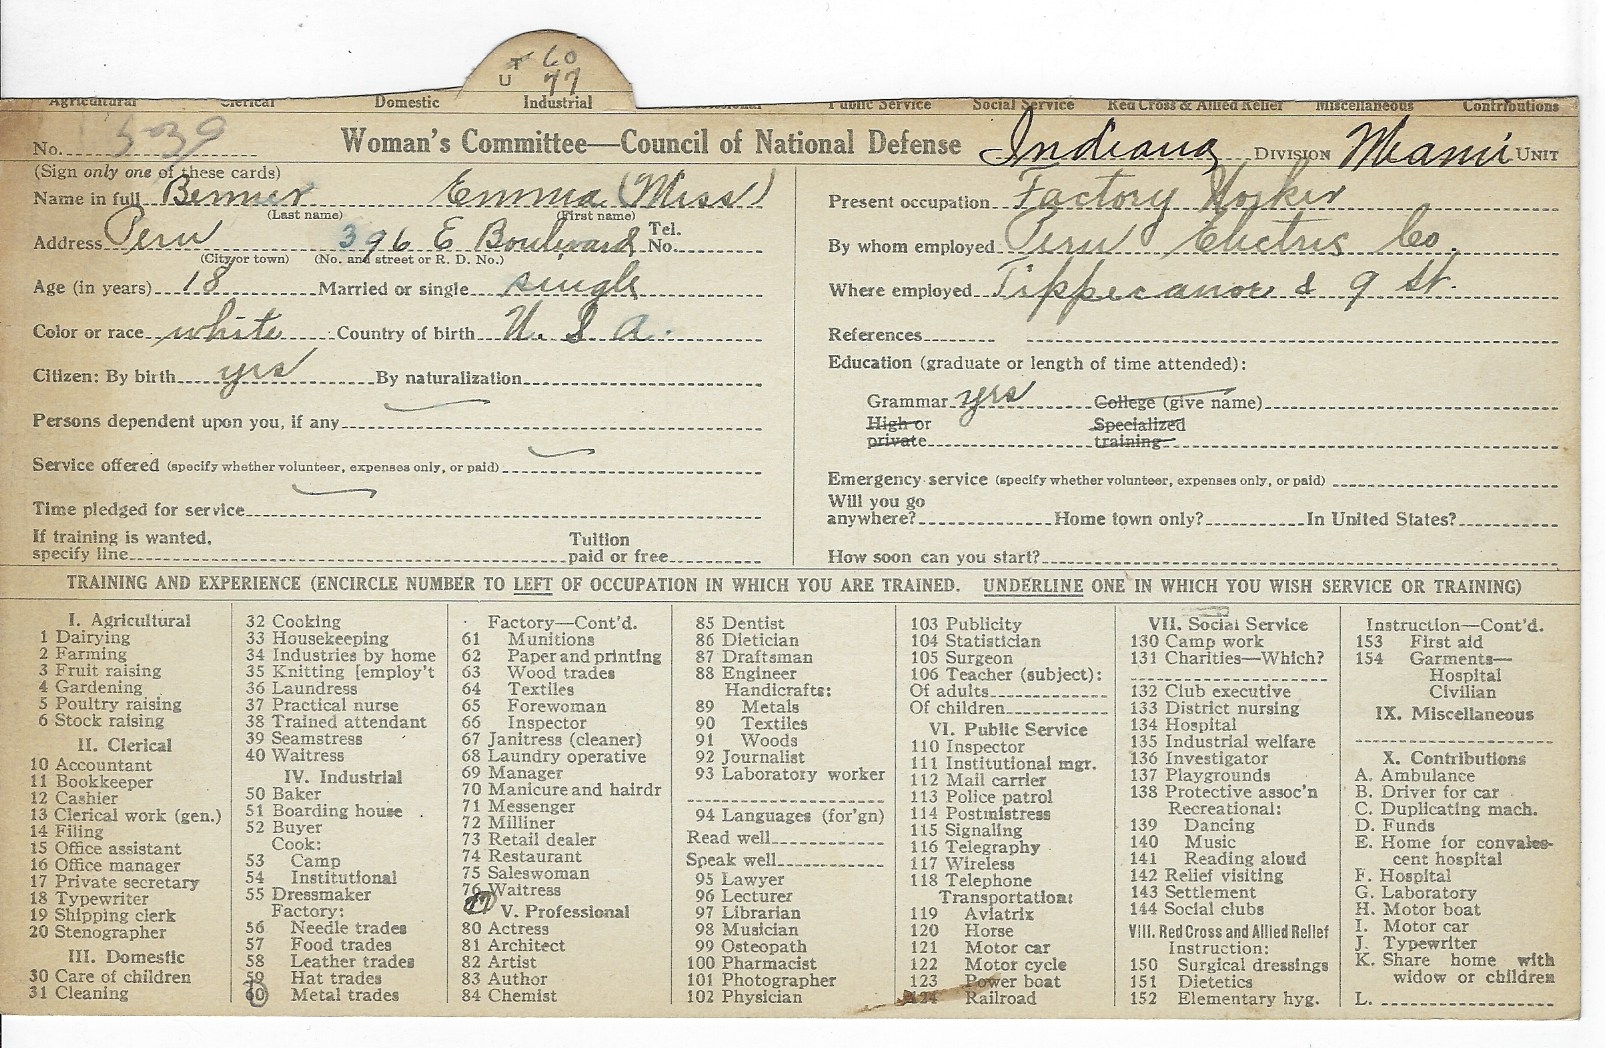 T 60
U 77
Agricultural Clerical Domestic Industrial Professional Public Service Social Service Red Cross & Allied Relief Miscellaneous Contributions
No. 539 Woman's Committee—Council of National Defense Indiana DIVISION Miami UNIT
(Sign only one of these cards)
Name in full Bernier Emma (Miss)
(Last name) (First name)
Address Peru 396 E Boulevard Tel. No.
(City or town) (No. and street or R. D. No.)
Age (in years) 18 Married or single single
Color or race white Country of birth U. S. A.
Citizen: By birth yes By naturalization
Persons dependent upon you, if any
Service offered (specify whether volunteer, expenses only, or paid)
Time pledged for service
If training is wanted, specify line Tuition paid or free
Present occupation Factory Worker
By whom employed Peru Electric Co.
Where employed Tippecanoe & 9 St.
References
Education (graduate or length of time attended):
Grammar yes College (give name)
High or private Specialized training
Emergency service (specify whether volunteer, expenses only, or paid)
Will you go
anywhere? Home town only? In United States?
How soon can you start?
TRAINING AND EXPERIENCE (ENCIRCLE NUMBER TO LEFT OF OCCUPATION IN WHICH YOU ARE TRAINED. UNDERLINE ONE IN WHICH YOU WISH SERVICE OR TRAINING)
I. Agricultural
1 Dairying
2 Farming
3 Fruit raising
4 Gardening
5 Poultry raising
6 Stock raising
II. Clerical
10 Accountant
11 Bookkeeper
12 Cashier
13 Clerical work (gen.)
14 Filing
15 Office assistant
16 Office manager
17 Private secretary
18 Typewriter
19 Shipping clerk
20 Stenographer
III. Domestic
30 Care of children
31 Cleaning
32 Cooking
33 Housekeeping
34 Industries by home
35 Knitting [employ't
36 Laundress
37 Practical nurse
38 Trained attendant
39 Seamstress
40 Waitress
IV. Industrial
50 Baker
51 Boarding house
52 Buyer
Cook:
53 Camp
54 Institutional
55 Dressmaker
Factory:
56 Needle trades
57 Food trades
58 Leather trades
59 Hat trades
60 Metal trades
Factory—Cont'd.
61 Munitions
62 Paper and printing
63 Wood trades
64 Textiles
65 Forewoman
66 Inspector
67 Janitress (cleaner)
68 Laundry operative
69 Manager
70 Manicure and hairdr
71 Messenger
72 Milliner
73 Retail dealer
74 Restaurant
75 Saleswoman
76 Waitress
77
V. Professional
80 Actress
81 Architect
82 Artist
83 Author
84 Chemist
85 Dentist
86 Dietician
87 Draftsman
88 Engineer
Handicrafts:
89 Metals
90 Textiles
91 Woods
92 Journalist
93 Laboratory worker
94 Languages (for'gn)
Read well
Speak well
95 Lawyer
96 Lecturer
97 Librarian
98 Musician
99 Osteopath
100 Pharmacist
101 Photographer
102 Physician
103 Publicity
104 Statistician
105 Surgeon
106 Teacher (subject):
Of adults
Of children
VI. Public Service
110 Inspector
111 Institutional mgr.
112 Mail carrier
113 Police patrol
114 Postmistress
115 Signaling
116 Telegraphy
117 Wireless
118 Telephone
Transportation:
119 Aviatrix
120 Horse
121 Motor car
122 Motor cycle
123 Power boat
124 Railroad
VII. Social Service
130 Camp work
131 Charities—Which?
132 Club executive
133 District nursing
134 Hospital
135 Industrial welfare
136 Investigator
137 Playgrounds
138 Protective assoc'n
Recreational:
139 Dancing
140 Music
141 Reading aloud
142 Relief visiting
143 Settlement
144 Social clubs
VIII. Red Cross and Allied Relief
Instruction:
150 Surgical dressings
151 Dietetics
152 Elementary hyg.
Instruction—Cont'd.
153 First aid
154 Garments—
Hospital
Civilian
IX. Miscellaneous
X. Contributions
A. Ambulance
B. Driver for car
C. Duplicating mach.
D. Funds
E. Home for convales-
cent hospital
F. Hospital
G. Laboratory
H. Motor boat
I. Motor car
J. Typewriter
K. Share home with
widow or children
L.